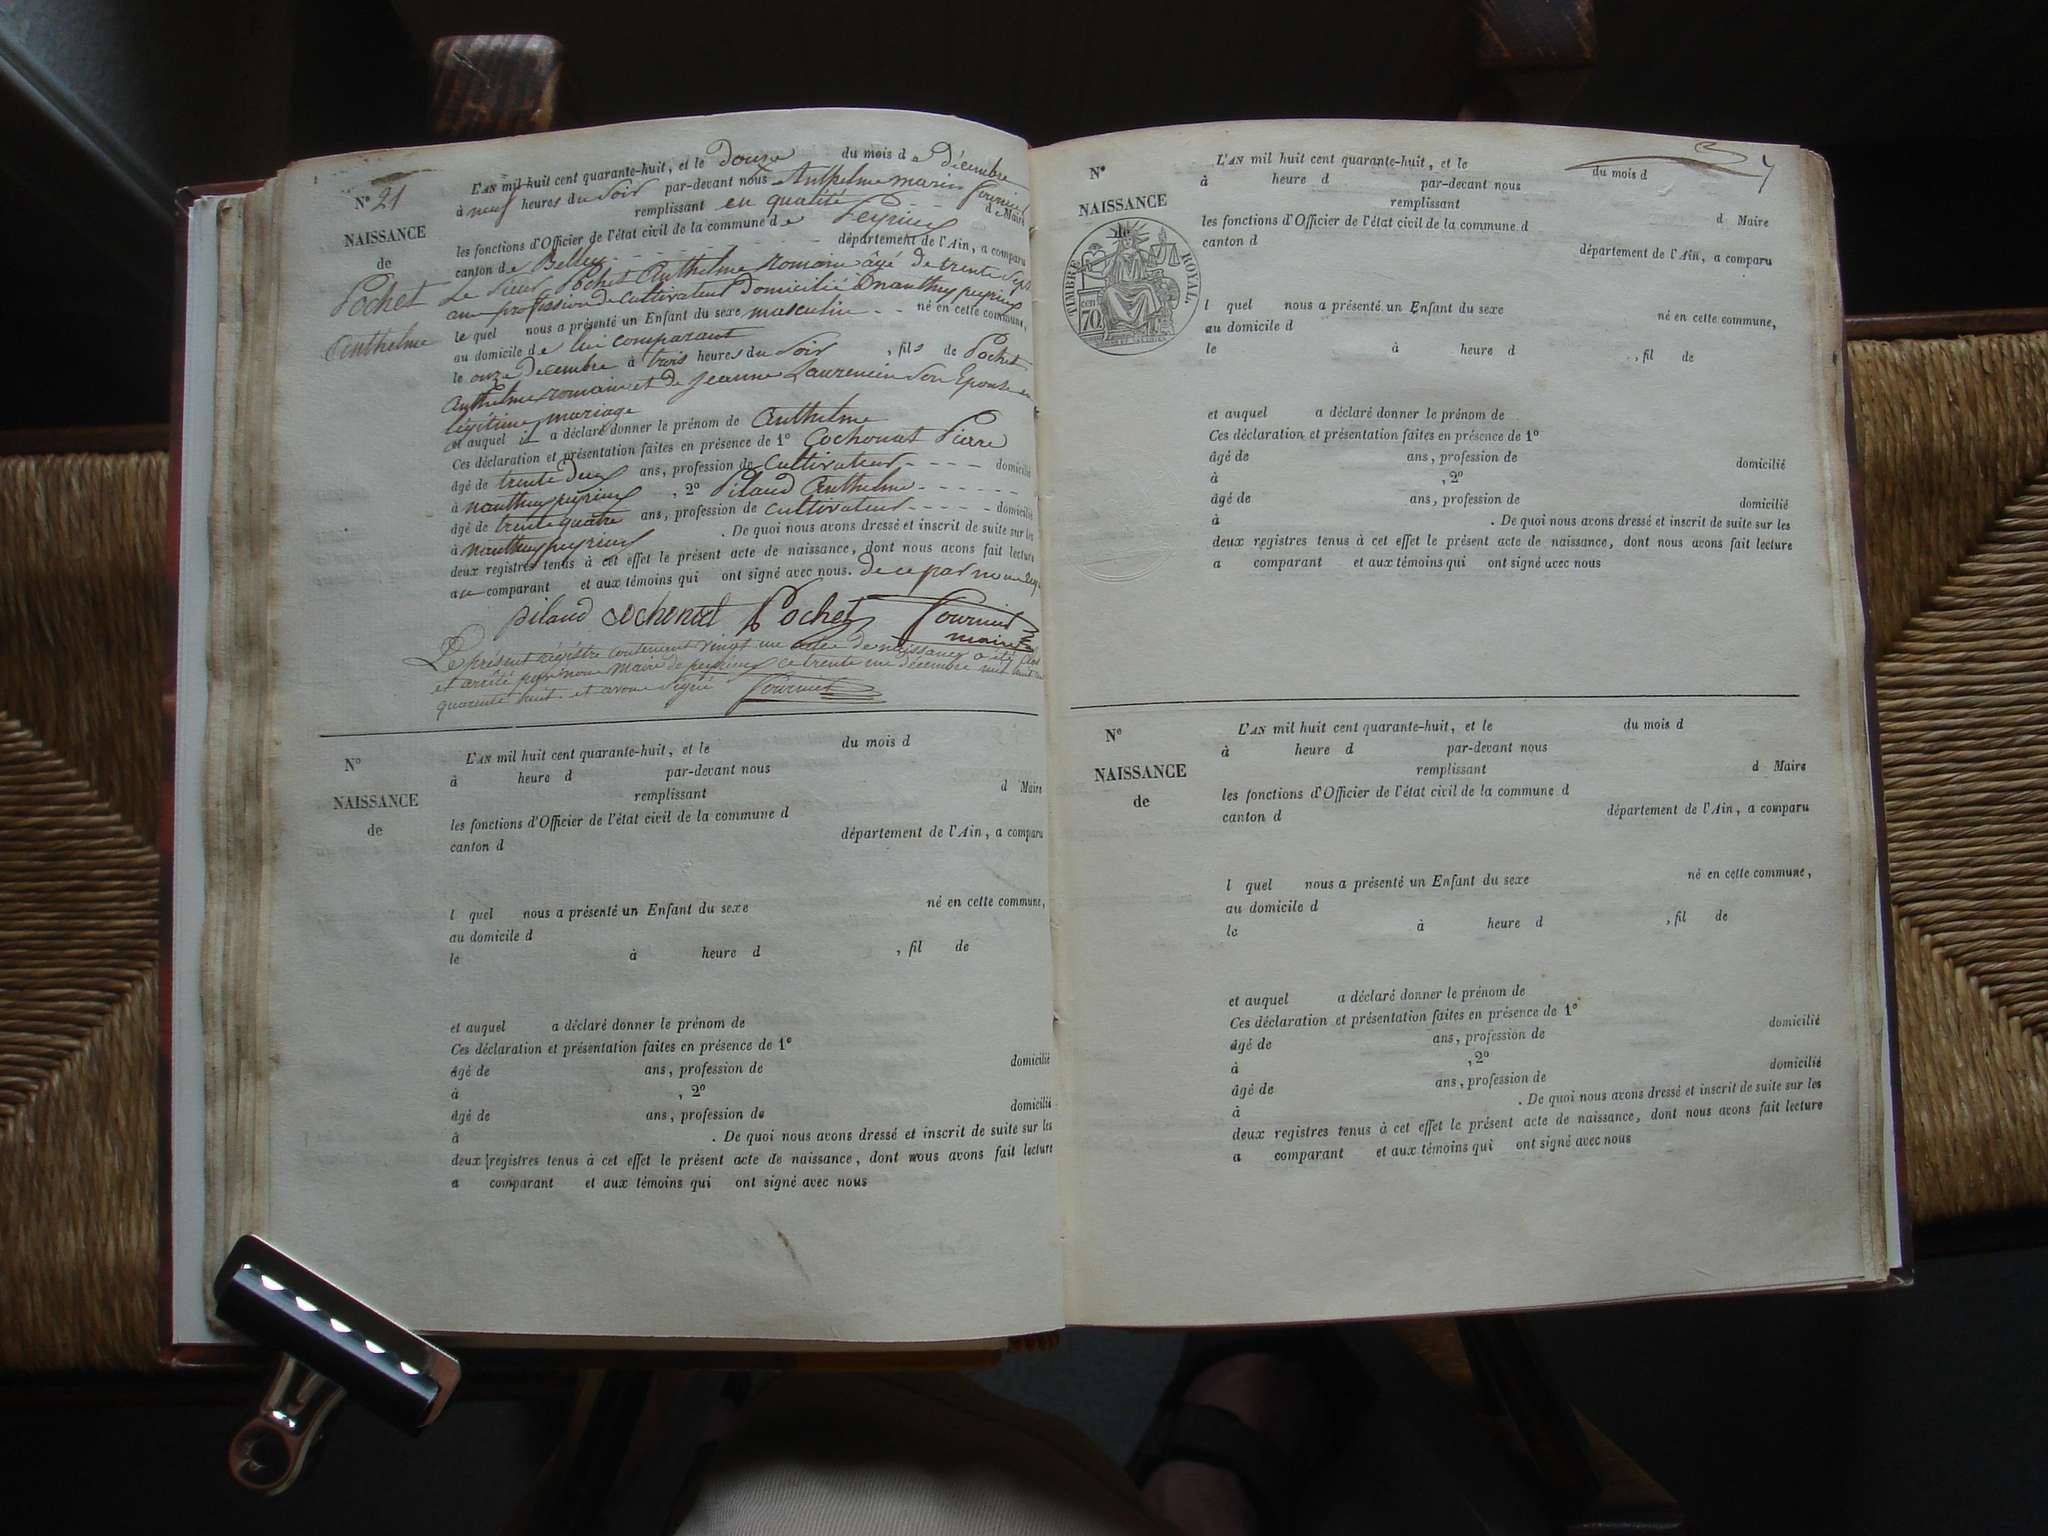 N° 21
NAISSANCE
de
Pochet
Anthelme
L'AN mil huit cent quarante-huit, et le Douze du mois de Décembre
à neuf heures du Soir par-devant nous Anthelme marin fournier
remplissant en qualité de Maire
les fonctions d'Officier de l'état civil de la commune de Peyrieu
canton de Belley département de l'Ain, a comparu
Le Sieur Pochet Anthelme romain âgé de trente Sept
ans profession de cultivateur domicilié à nanthuy peyrieu
le quel nous a présenté un Enfant du sexe masculin né en cette commune,
au domicile de lui comparant
le onze Decembre à trois heures du Soir, fils de Pochet
Anthelme romain et de jeanne Laurencin Son Epouse en
légitime mariage
et auquel il a déclaré donner le prénom de Anthelme
Ces déclaration et présentation faites en présence de 1° Cochonat Pierre
âgé de trente deux ans, profession de Cultivateur domicilié
à nanthuy peyrieu, 2° Pilaud Anthelme
âgé de trente quatre ans, profession de cultivateur domicilié
à nanthuy peyrieu. De quoi nous avons dressé et inscrit de suite sur les
deux registres tenus à cet effet le présent acte de naissance, dont nous avons fait lecture
au comparant et aux témoins qui ont signé avec nous. de ce par nous
pilaud cochonat Pochet fournier
maire
Le présent régistre contenant vingt un actes de naissances a été clos
et arrêté par nous Maire de peyrieu ce trente un décembre mil huit cent
quarente huit. et avons Signé fournier
N°
NAISSANCE
de
L'AN mil huit cent quarante-huit, et le du mois d
à heure d par-devant nous
remplissant d Maire
les fonctions d'Officier de l'état civil de la commune d
canton d département de l'Ain, a comparu
l quel nous a présenté un Enfant du sexe né en cette commune,
au domicile d
le à heure d , fil de
et auquel a déclaré donner le prénom de
Ces déclaration et présentation faites en présence de 1°
âgé de ans, profession de domicilié
à , 2°
âgé de ans, profession de domicilié
à . De quoi nous avons dressé et inscrit de suite sur les
deux registres tenus à cet effet le présent acte de naissance, dont nous avons fait lecture
a comparant et aux témoins qui ont signé avec nous
7
N°
NAISSANCE
de
TIMBRE ROYAL.
cen
70
L'AN mil huit cent quarante-huit, et le du mois d
à heure d par-devant nous
remplissant d Maire
les fonctions d'Officier de l'état civil de la commune d
canton d département de l'Ain, a comparu
l quel nous a présenté un Enfant du sexe né en cette commune,
au domicile d
le à heure d , fil de
et auquel a déclaré donner le prénom de
Ces déclaration et présentation faites en présence de 1°
âgé de ans, profession de domicilié
à , 2°
âgé de ans, profession de domicilié
à . De quoi nous avons dressé et inscrit de suite sur les
deux registres tenus à cet effet le présent acte de naissance, dont nous avons fait lecture
a comparant et aux témoins qui ont signé avec nous
N°
NAISSANCE
de
L'AN mil huit cent quarante-huit, et le du mois d
à heure d par-devant nous
remplissant d Maire
les fonctions d'Officier de l'état civil de la commune d
canton d département de l'Ain, a comparu
l quel nous a présenté un Enfant du sexe né en cette commune,
au domicile d
le à heure d , fil de
et auquel a déclaré donner le prénom de
Ces déclaration et présentation faites en présence de 1°
âgé de ans, profession de domicilié
à , 2°
âgé de ans, profession de domicilié
à . De quoi nous avons dressé et inscrit de suite sur les
deux registres tenus à cet effet le présent acte de naissance, dont nous avons fait lecture
a comparant et aux témoins qui ont signé avec nous